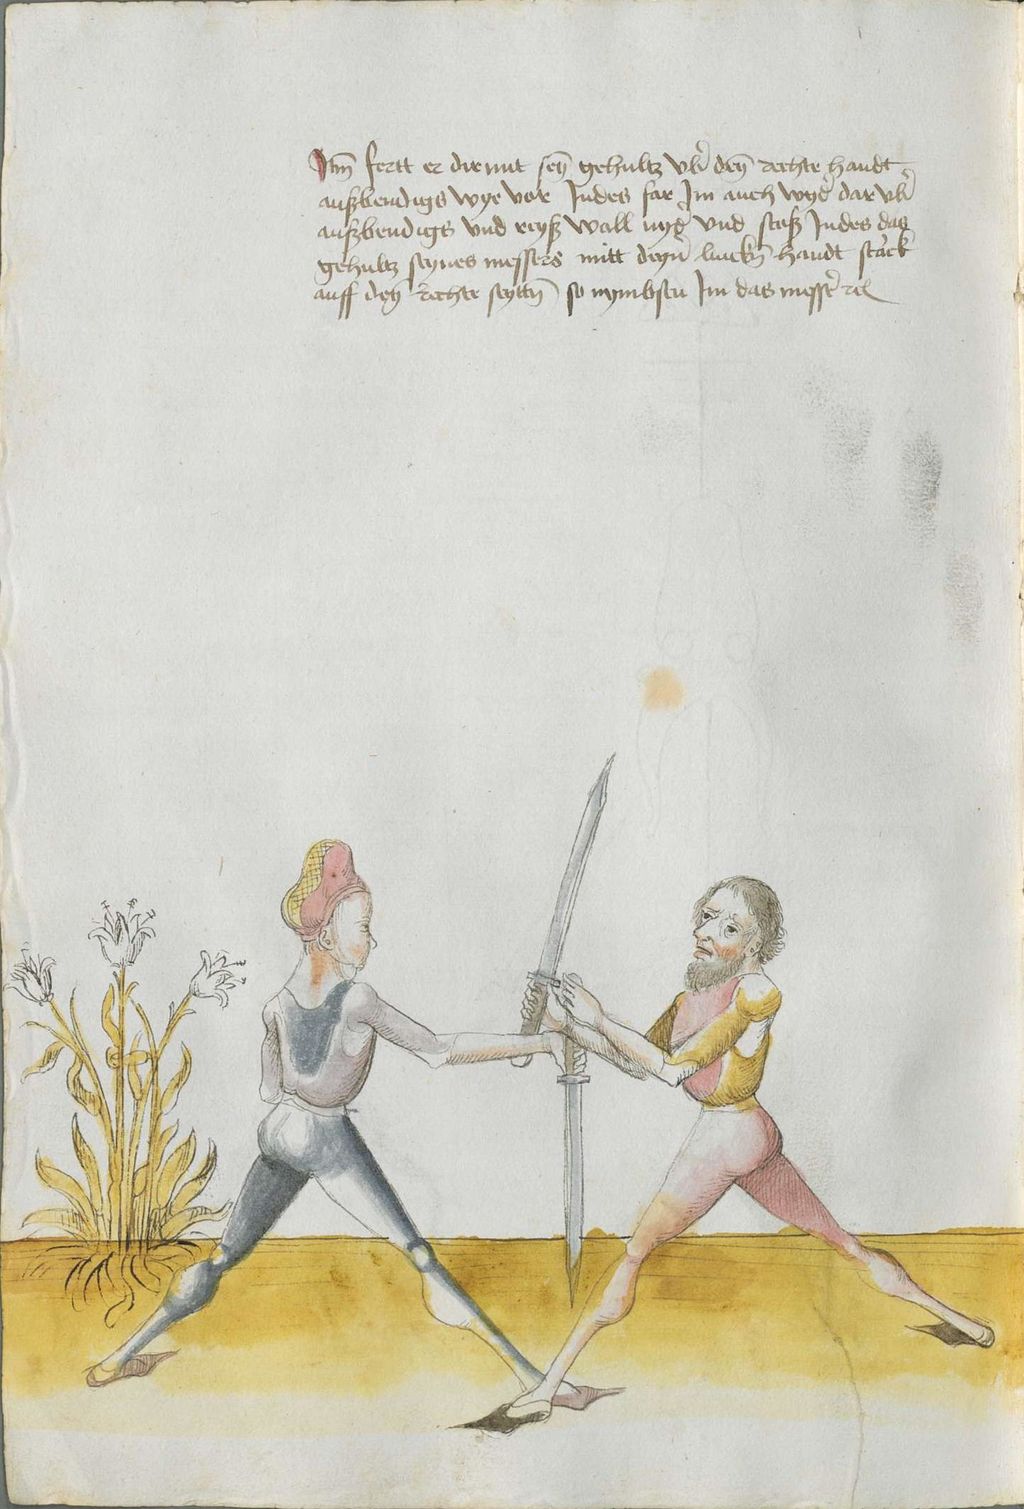 Itm̄ fertt er dir mit sey̅ gehultz vb̾ dey̅ rechte handt
außbendigs wye vor Indes far Im auch wyd̾ dar vb̾
außbendigs vnd reyß woll nyd̾ vnd stoß Indes das
gehultz seynes messers mitt deyn̾ lincky̅ handt starck
auff dey̅ rechte seytty̅ so nymbstu Im das mess̾ rc